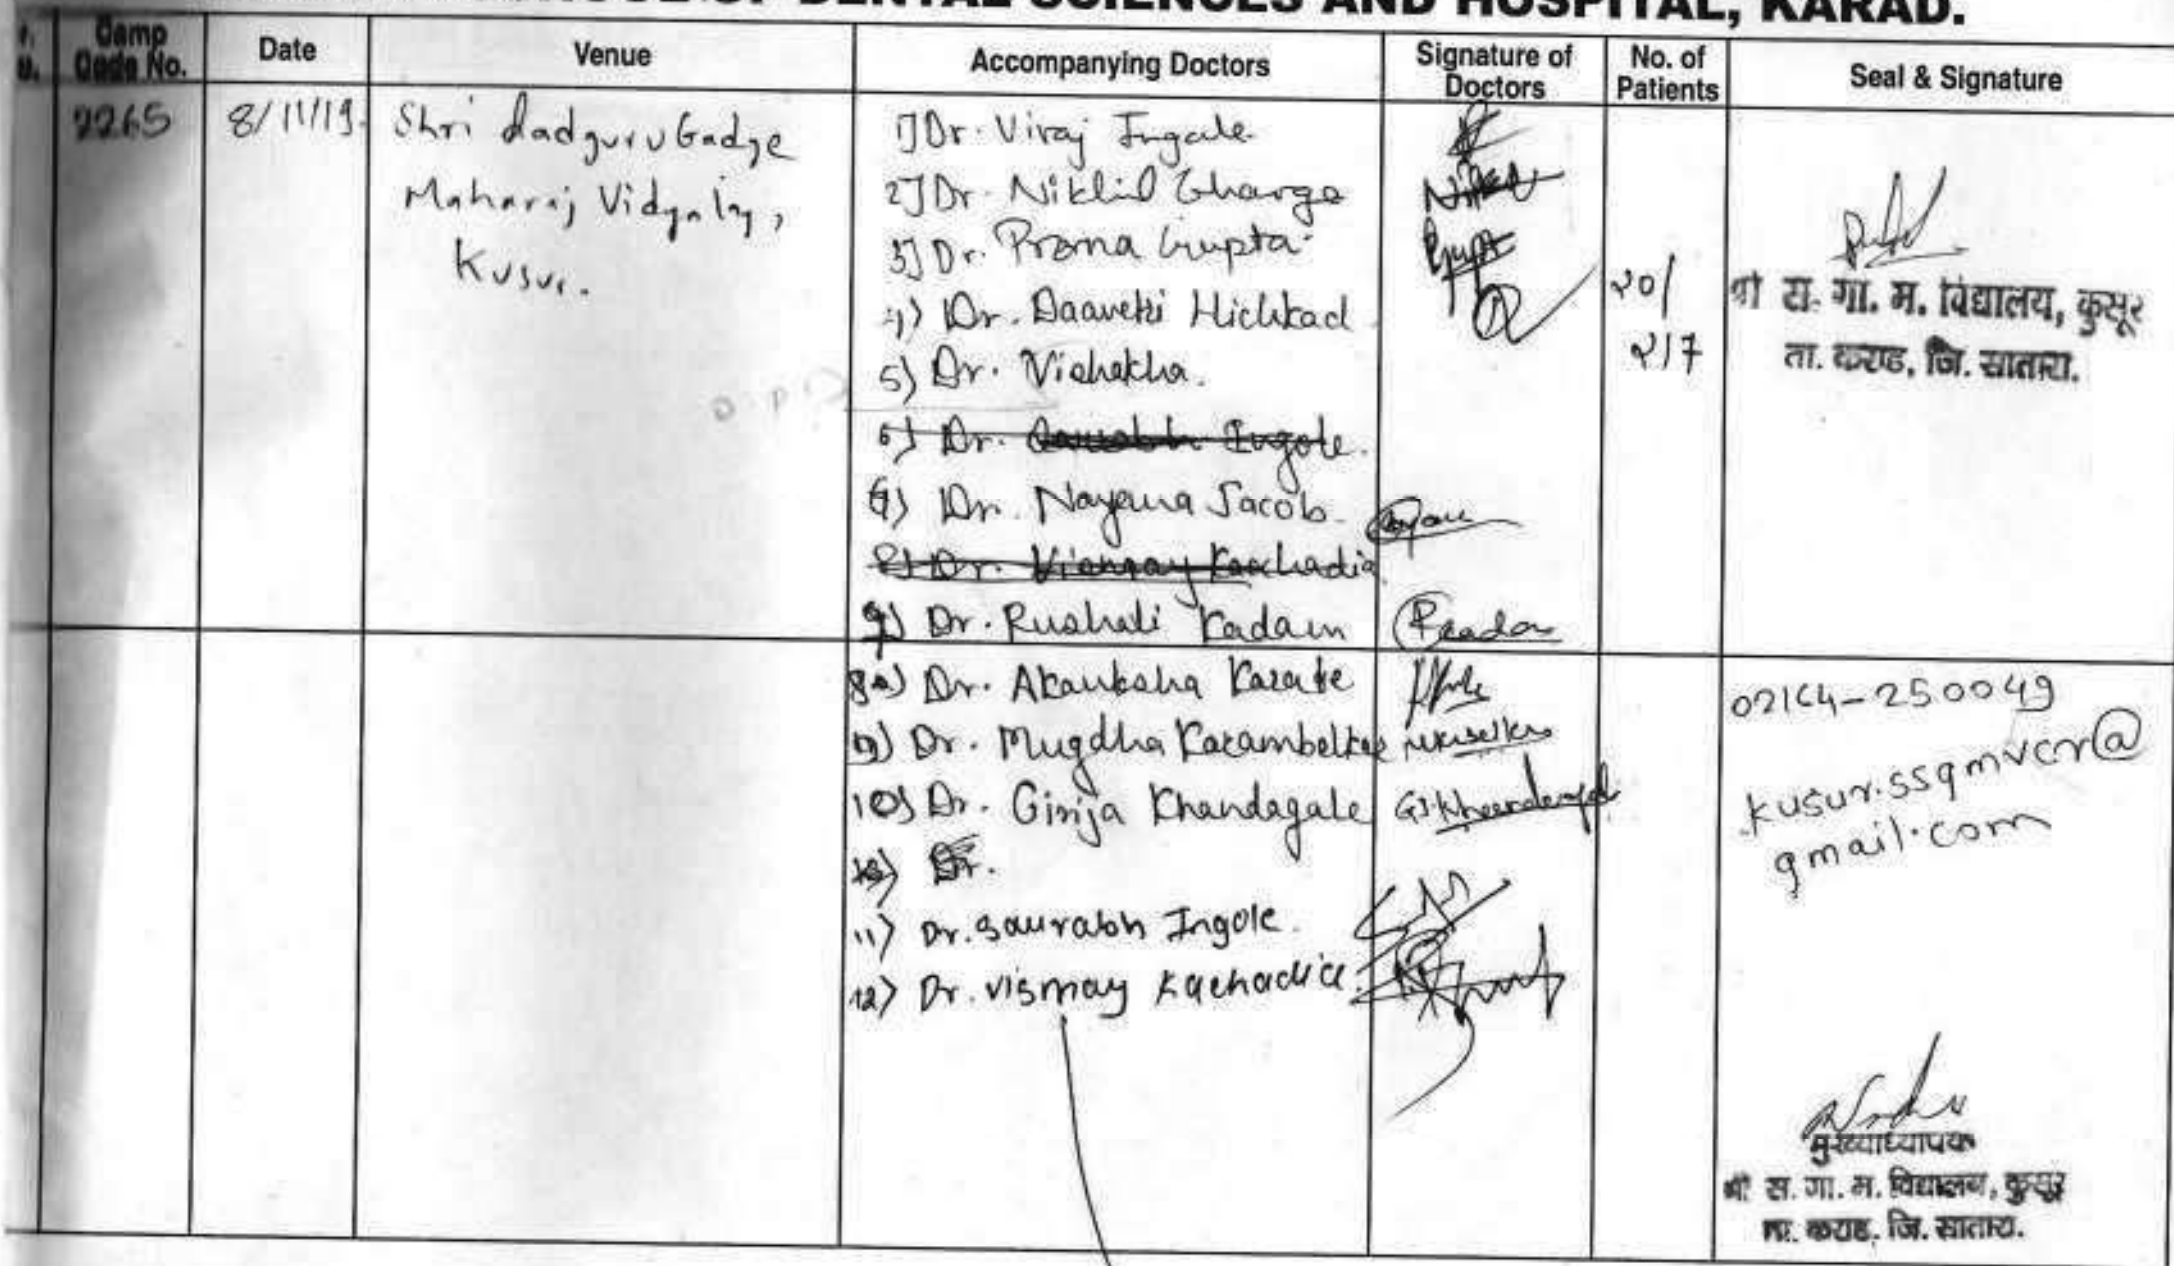 OF DENTAL SCIENCES AND HOSPITAL, KARAD.
Camp Code No. Date Venue Accompanying Doctors Signature of Doctors No. of Patients Seal & Signature
2265 8/11/19 Shri Sadguru Gadge
Maharaj Vidyalay,
Kusur.
1] Dr. Viraj Ingale
2] Dr. Nikhil Gharge
3] Dr. Prerna Gupta
4) Dr. Daaveti Hichkad
5) Dr. Vishakha.
6) Dr. Saurabh Ingole.
6) Dr. Nayana Jacob
8) Dr. Vismay Kachadia
7) Dr. Rushali Kadam
8) Dr. Akanksha Karate
9) Dr. Mugdha Karambelkar
10) Dr. Girija Khandagale
Dr.
11) Dr. Saurabh Ingole.
12) Dr. Vismay Kachadia
20/
217
श्री स. गा. म. विद्यालय, कुसूर
ता. कराड, जि. सातारा.
02164-250049
kusur.ssgmvcr@
gmail.com
मुख्याध्यापक
श्री स. गा. म. विद्यालय, कुसूर
ता. कराड, जि. सातारा.